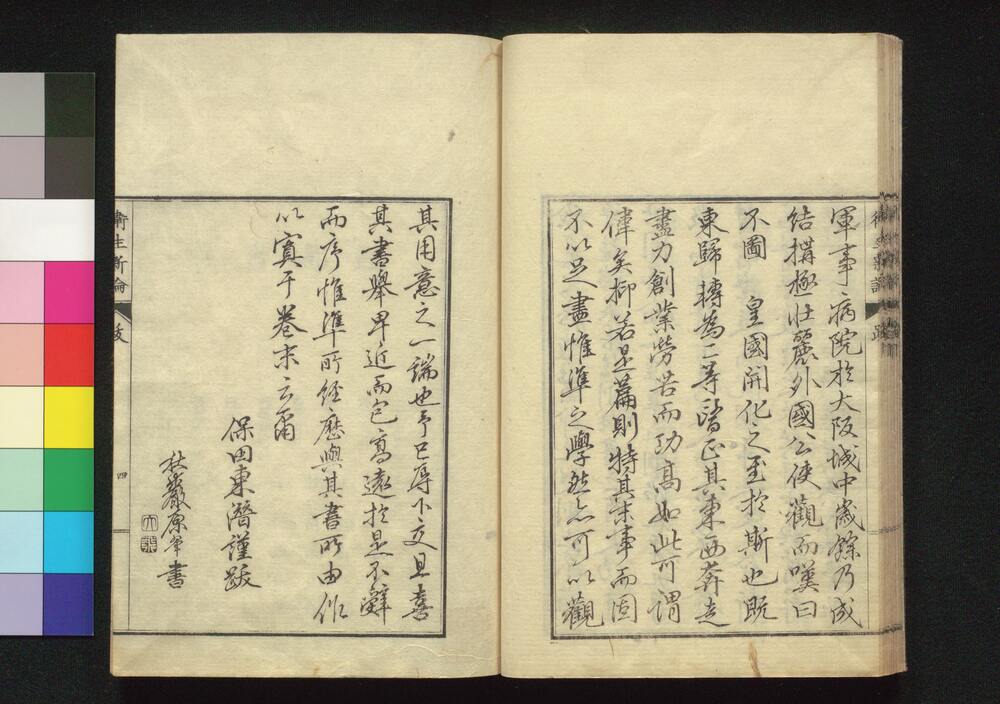 軍事病院於大阪城中歲餘乃成
結搆極壯麗外國公使觀而嘆曰
不圖　皇國開化之至於斯也既
東歸轉為二等醫正其東西奔走
盡力創業勞苦而功高如此可謂
偉矣抑若是篇則特其末事而固
不以足盡惟準之學然亦可以觀
其用意之一端也予已辱下交且喜
其書舉卑近而包高遠於是不辭
而序惟準所經歷與其書所由作
以寘于卷末云爾
保田東潛謹跋
秋巖原翬書
衛生新論
跋
四